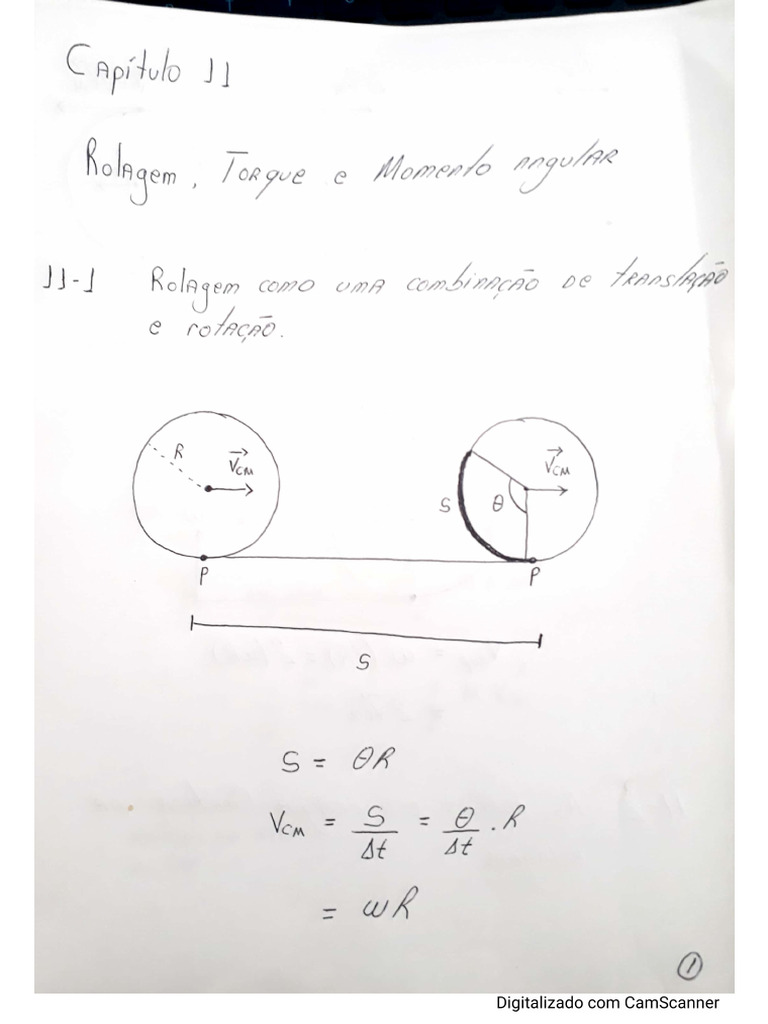 Capítulo 11
Rolagem, Torque e Momento angular
11-1 Rolagem como uma combinação de translação
e rotação.
R
V⃗CM
P
V⃗CM
S
θ
P
S
S = θR
VCM = S/Δt = θ/Δt . R
= ωR
1
Digitalizado com CamScanner